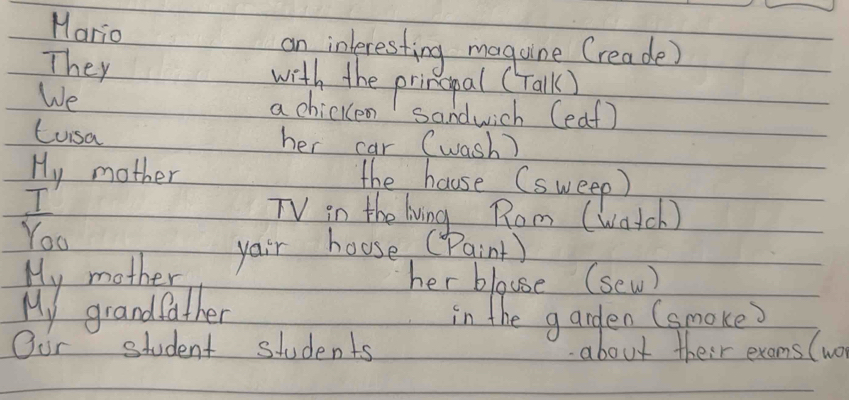 Mario an interesting maquine (reade)
They with the principal (Talk)
We a chicken sandwich (eat)
Luisa her car (wash)
My mother the hause (sweep)
I TV in the living Rom (watch)
You yair house (Paint)
My mother her blouse (sew)
My grandfather in the garden (smoke)
Our student students about their exams (wor